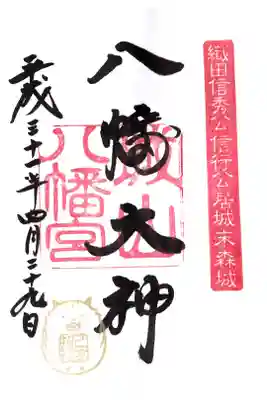 織田信秀公信行公居城末森城
八幡大神
城山
八幡宮
平成三十一年四月二十九日